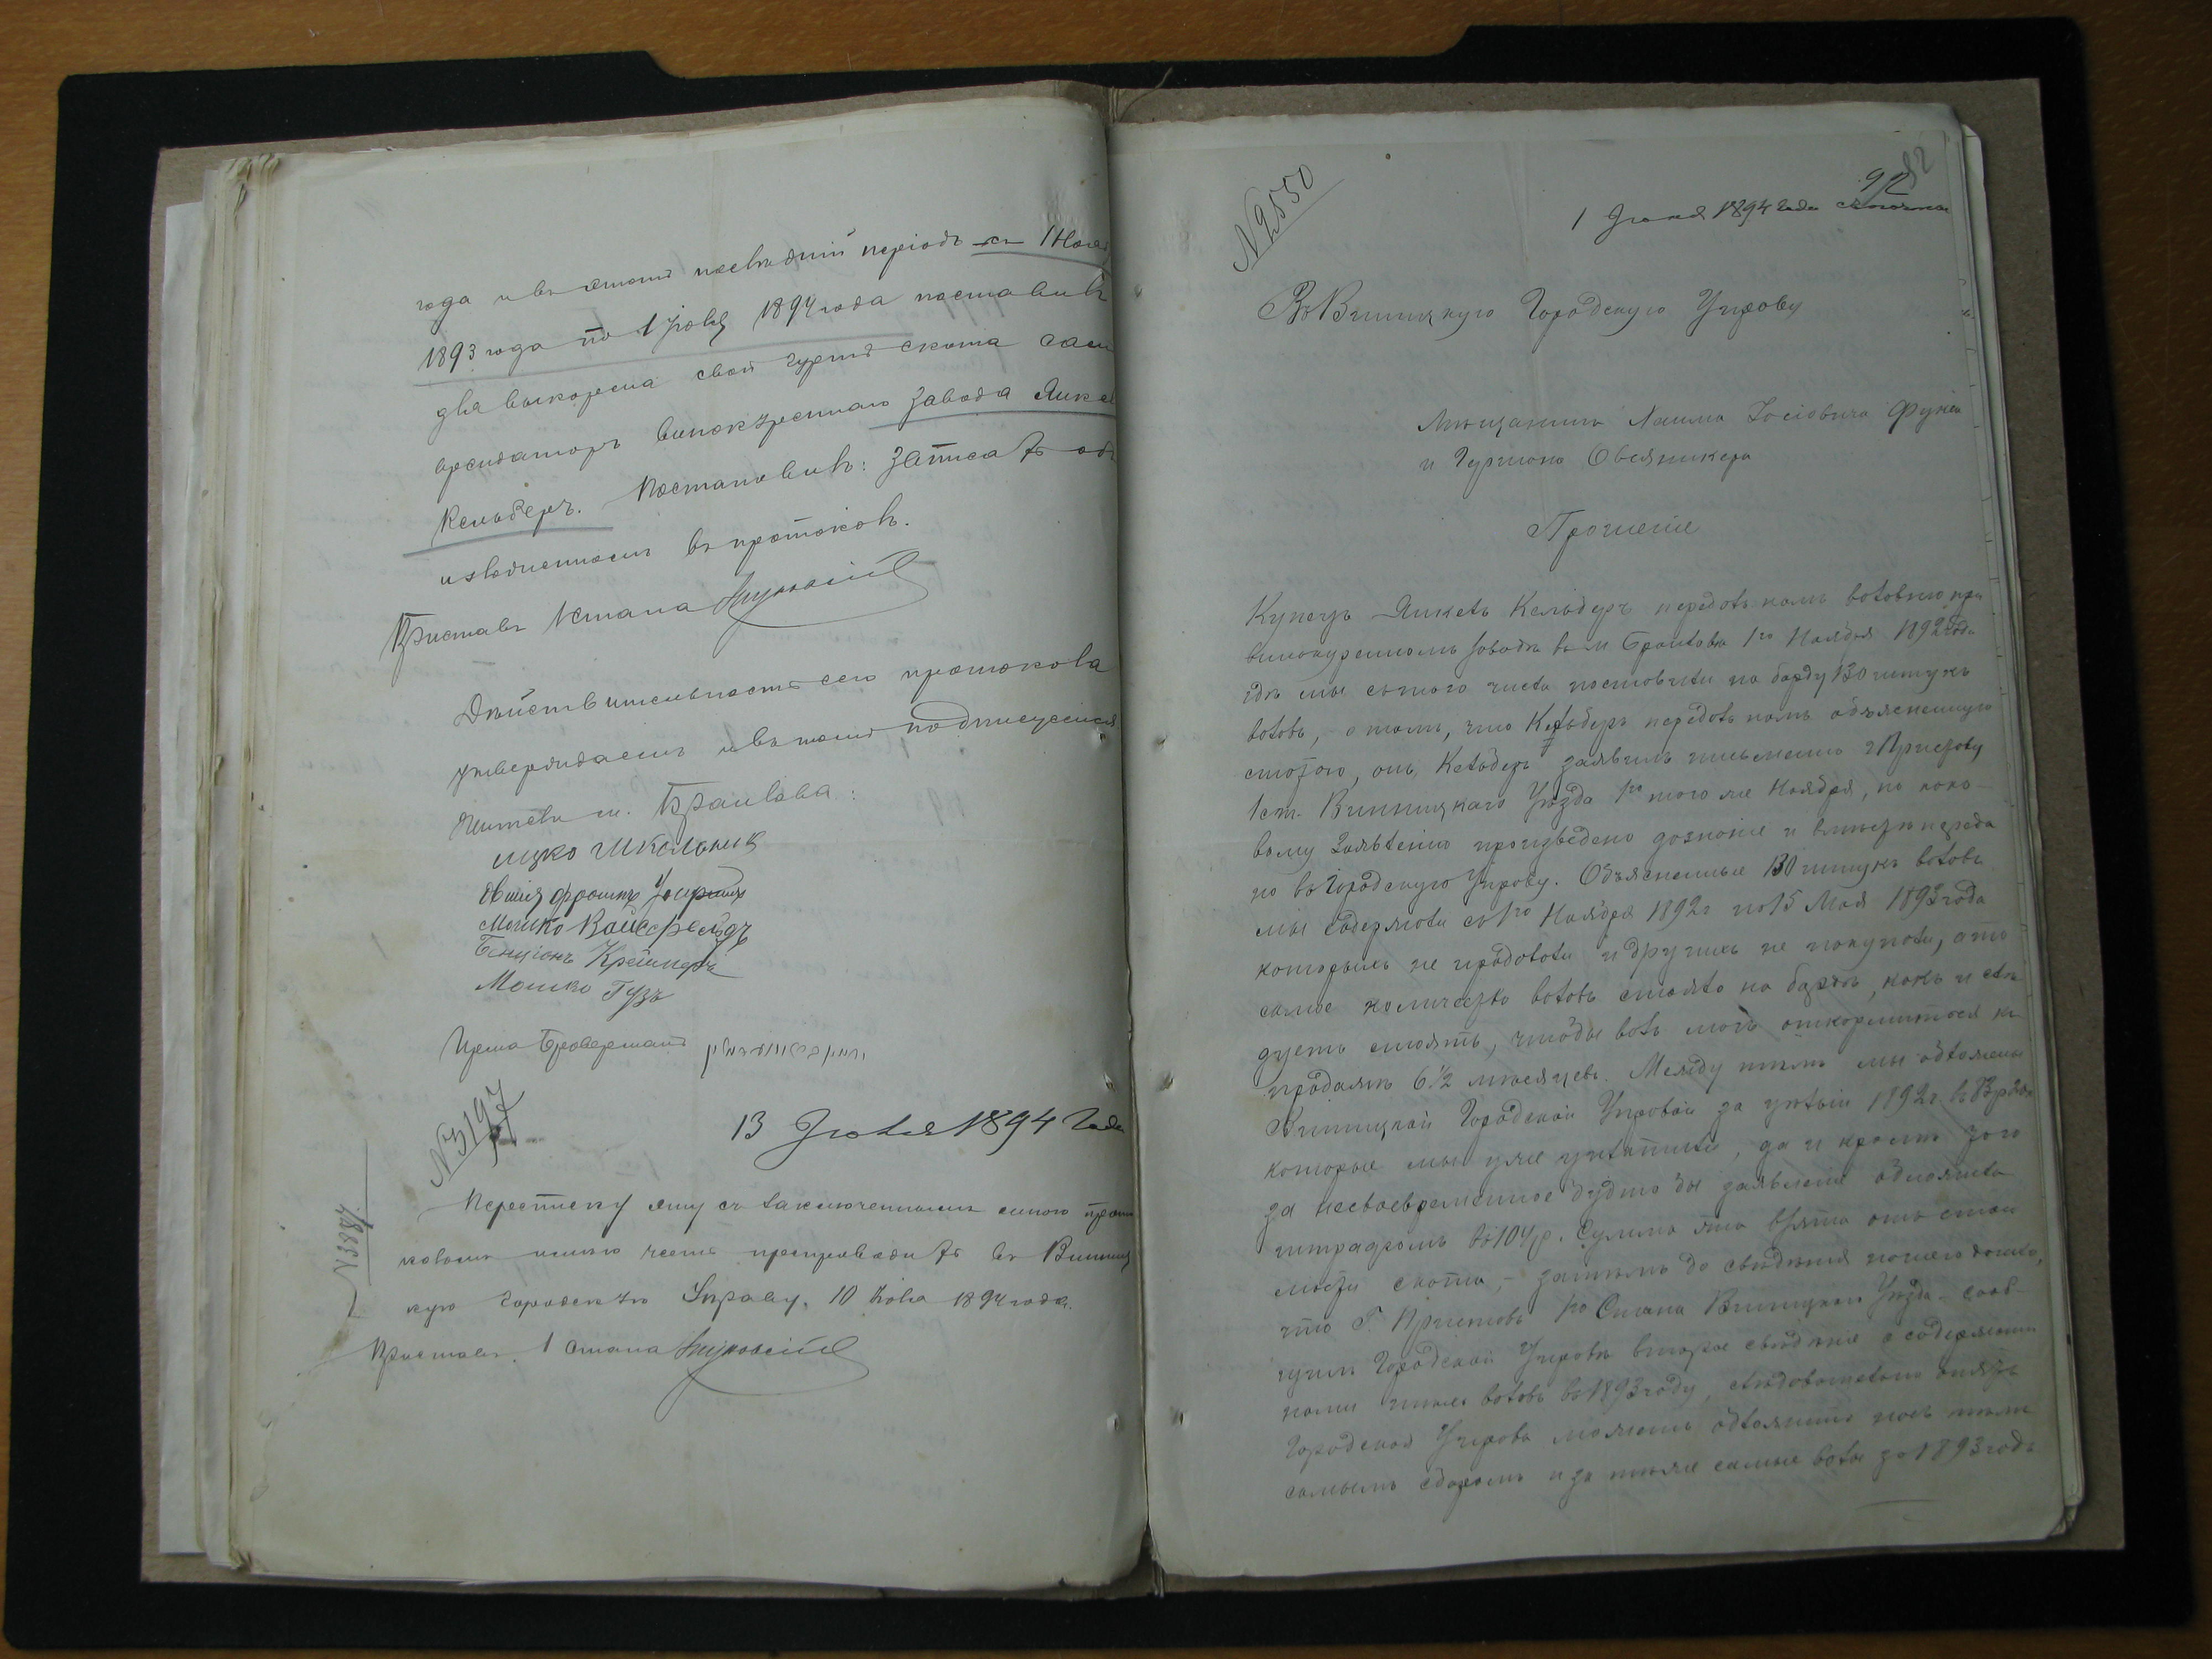 года и въ этотъ последній періодъ съ 1 Нояб
1893 года по 1 Іюля 1894 года поставилъ
для выкорма свой гуртъ скота самъ
арендаторъ винокуреннаго завода Янкель
Кельберъ. Постановилъ: записать объ
изложенномъ въ протоколъ.
Приставъ 1 стана
Дѣйствительность сего протокола
утверждаемъ и въ томъ подписуемся
Жители м. Браилова:
Ицко Школьникъ
Мошко Вайсфельдъ
Бенціонъ Креймеръ
Мошко Гузъ
Броверманъ
№3197
13 Іюля 1894 Года
Переписку эту съ заключеннымъ мною прото
коломъ имѣю честь препроводить въ Винниц
кую Городскую Управу. 10 Іюля 1894 года.
Приставъ 1 Стана
№2550
92
82
1 Іюня 1894 года
Въ Винницкую Городскую Управу
Мѣщанъ Іосіовича
и Овсяникера
Прошеніе
Купецъ Янкель Кельберъ передалъ намъ воловню при
винокуренномъ заводѣ въ м. Браиловѣ 1го Ноября 1892 года
гдѣ мы съ того числа поставили на барду 130 штукъ
воловъ, о томъ, что Кельберъ передалъ намъ объясненную
онъ, Кельберъ заявилъ письменно г Приставу
1 ст. Винницкаго Уѣзда 1го того же Ноября, по како-
вому заявленію произведено дознаніе и переда
но въ Городскую Управу. Объясненные 130 штукъ воловъ
мы содержали съ 1го Ноября 1892 г по 15 Мая 1893 года
которыхъ не продавали и другихъ не покупали, а то
самое количество воловъ стояло на бардѣ, какъ и слѣ
дуетъ стоять, чтобы волъ могъ откормиться къ
продажѣ 6½ мѣсяцевъ. Между тѣмъ мы обложены
Винницкой Городской Управой за цѣлый 1892 г.
которые мы уже уплатили, да и кромѣ того
за несвоевременное будто бы заявленіе обложила
штрафомъ Сумма эта взята отъ стои
мости скота, затѣмъ до свѣдѣнія нашего дошло,
что Г. Приставъ 1го Стана Винницкаго Уѣзда сооб-
щилъ Городской Управѣ второе свѣдѣніе о содержаніи
нами тѣхъ воловъ въ 1893 году, слѣдовательно опять
Городская Управа можетъ обложить насъ тѣмъ
самымъ сборомъ и за тѣ же самые волы за 1893 годъ